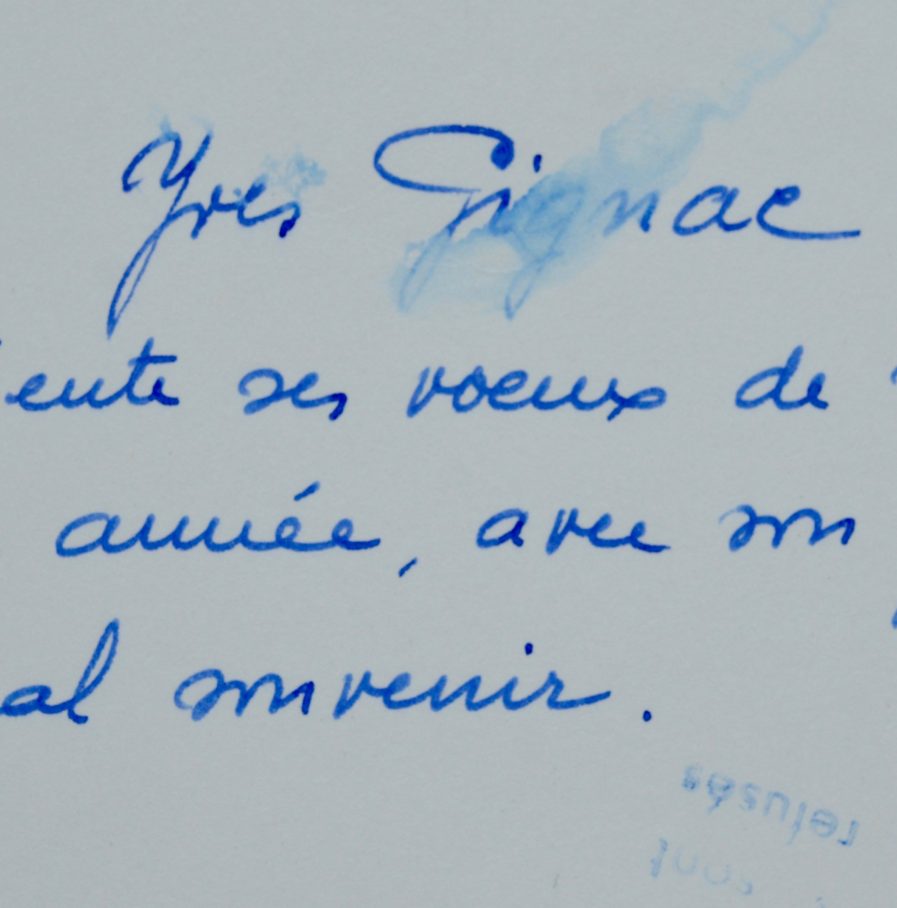 Yves Gignac
ente ses voeux de
année, avec son
al souvenir.
refusés
sont